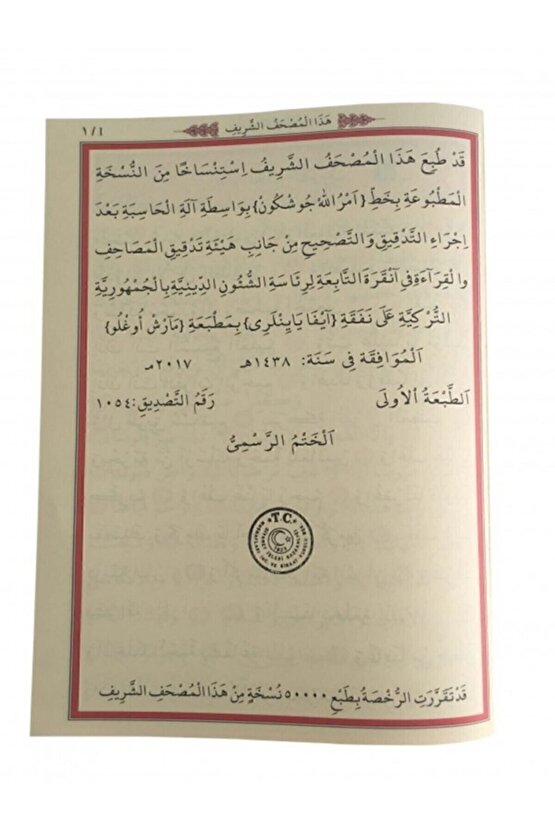 هَذَا الْمُصْحَفُ الشَّرِيفِ
١/٤
قَدْ طُبِعَ هَذَا الْمُصْحَفُ الشَّرِيفُ اِسْتِنْسَاخًا مِنَ النُّسْخَةِ
الْمَطْبُوعَةِ بِخَطِّ {اَمْرُ اللهْ جُوشْكُونْ} بِوَاسِطَةِ آلَةِ الْحَاسِبَةِ بَعْدَ
اِجْرَاءِ التَّدْقِيقِ وَالتَّصْحِيحِ مِنْ جَانِبِ هَيْئَةِ تَدْقِيقِ الْمَصَاحِفِ
وَالْقِرَآءَةِ فِي آنْقَرَةَ التَّابِعَةِ لِرِئَاسَةِ الشُّئُونِ الدِّينِيَّةِ بِالْجُمْهُورِيَّةِ
التُّرْكِيَّةِ عَلَى نَفَقَةِ {آيْفَا يَايِنْلَرِى} بِمَطْبَعَةِ {مَآرْشْ أُوغْلُو}
اَلْمُوَافِقَةِ فِي سَنَةِ: ١٤٣٨هـ ٢٠١٧مـ
اَلطَّبْعَةُ الْاُولَى رَقَمُ التَّصْدِيقِ: ١٠٥٤
اَلْخَتْمُ الرَّسْمِيُّ
T.C.
قَدْ تَقَرَّرَتِ الرُّخْصَةُ بِطَبْعِ ٥٠٠٠٠ نُسْخَةٍ مِنْ هَذَا الْمُصْحَفِ الشَّرِيفِ